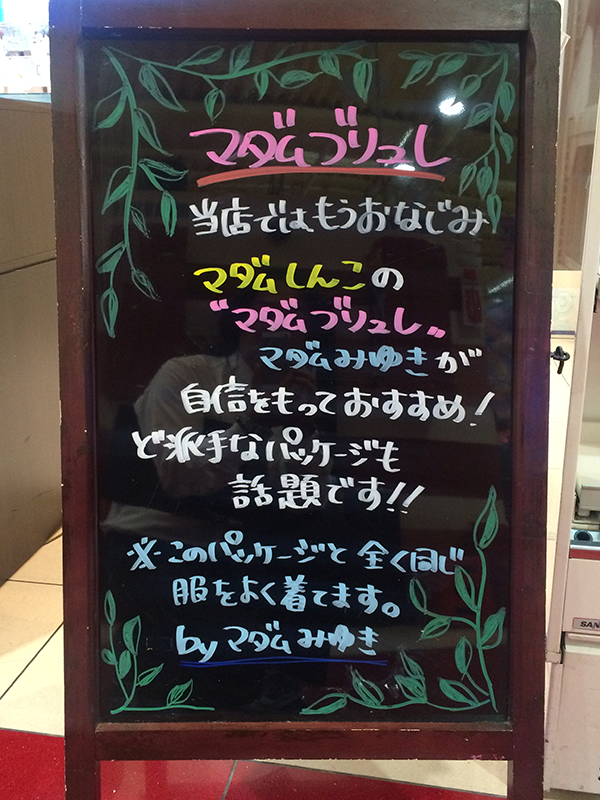 マダムブリュレ
当店ではもうおなじみ
マダムしんこの
"マダムブリュレ"
マダムみゆきが
自信をもっておすすめ！
ど派手なパッケージも
話題です！！
※このパッケージと全く同じ
服をよく着てます。
by マダムみゆき
SAN